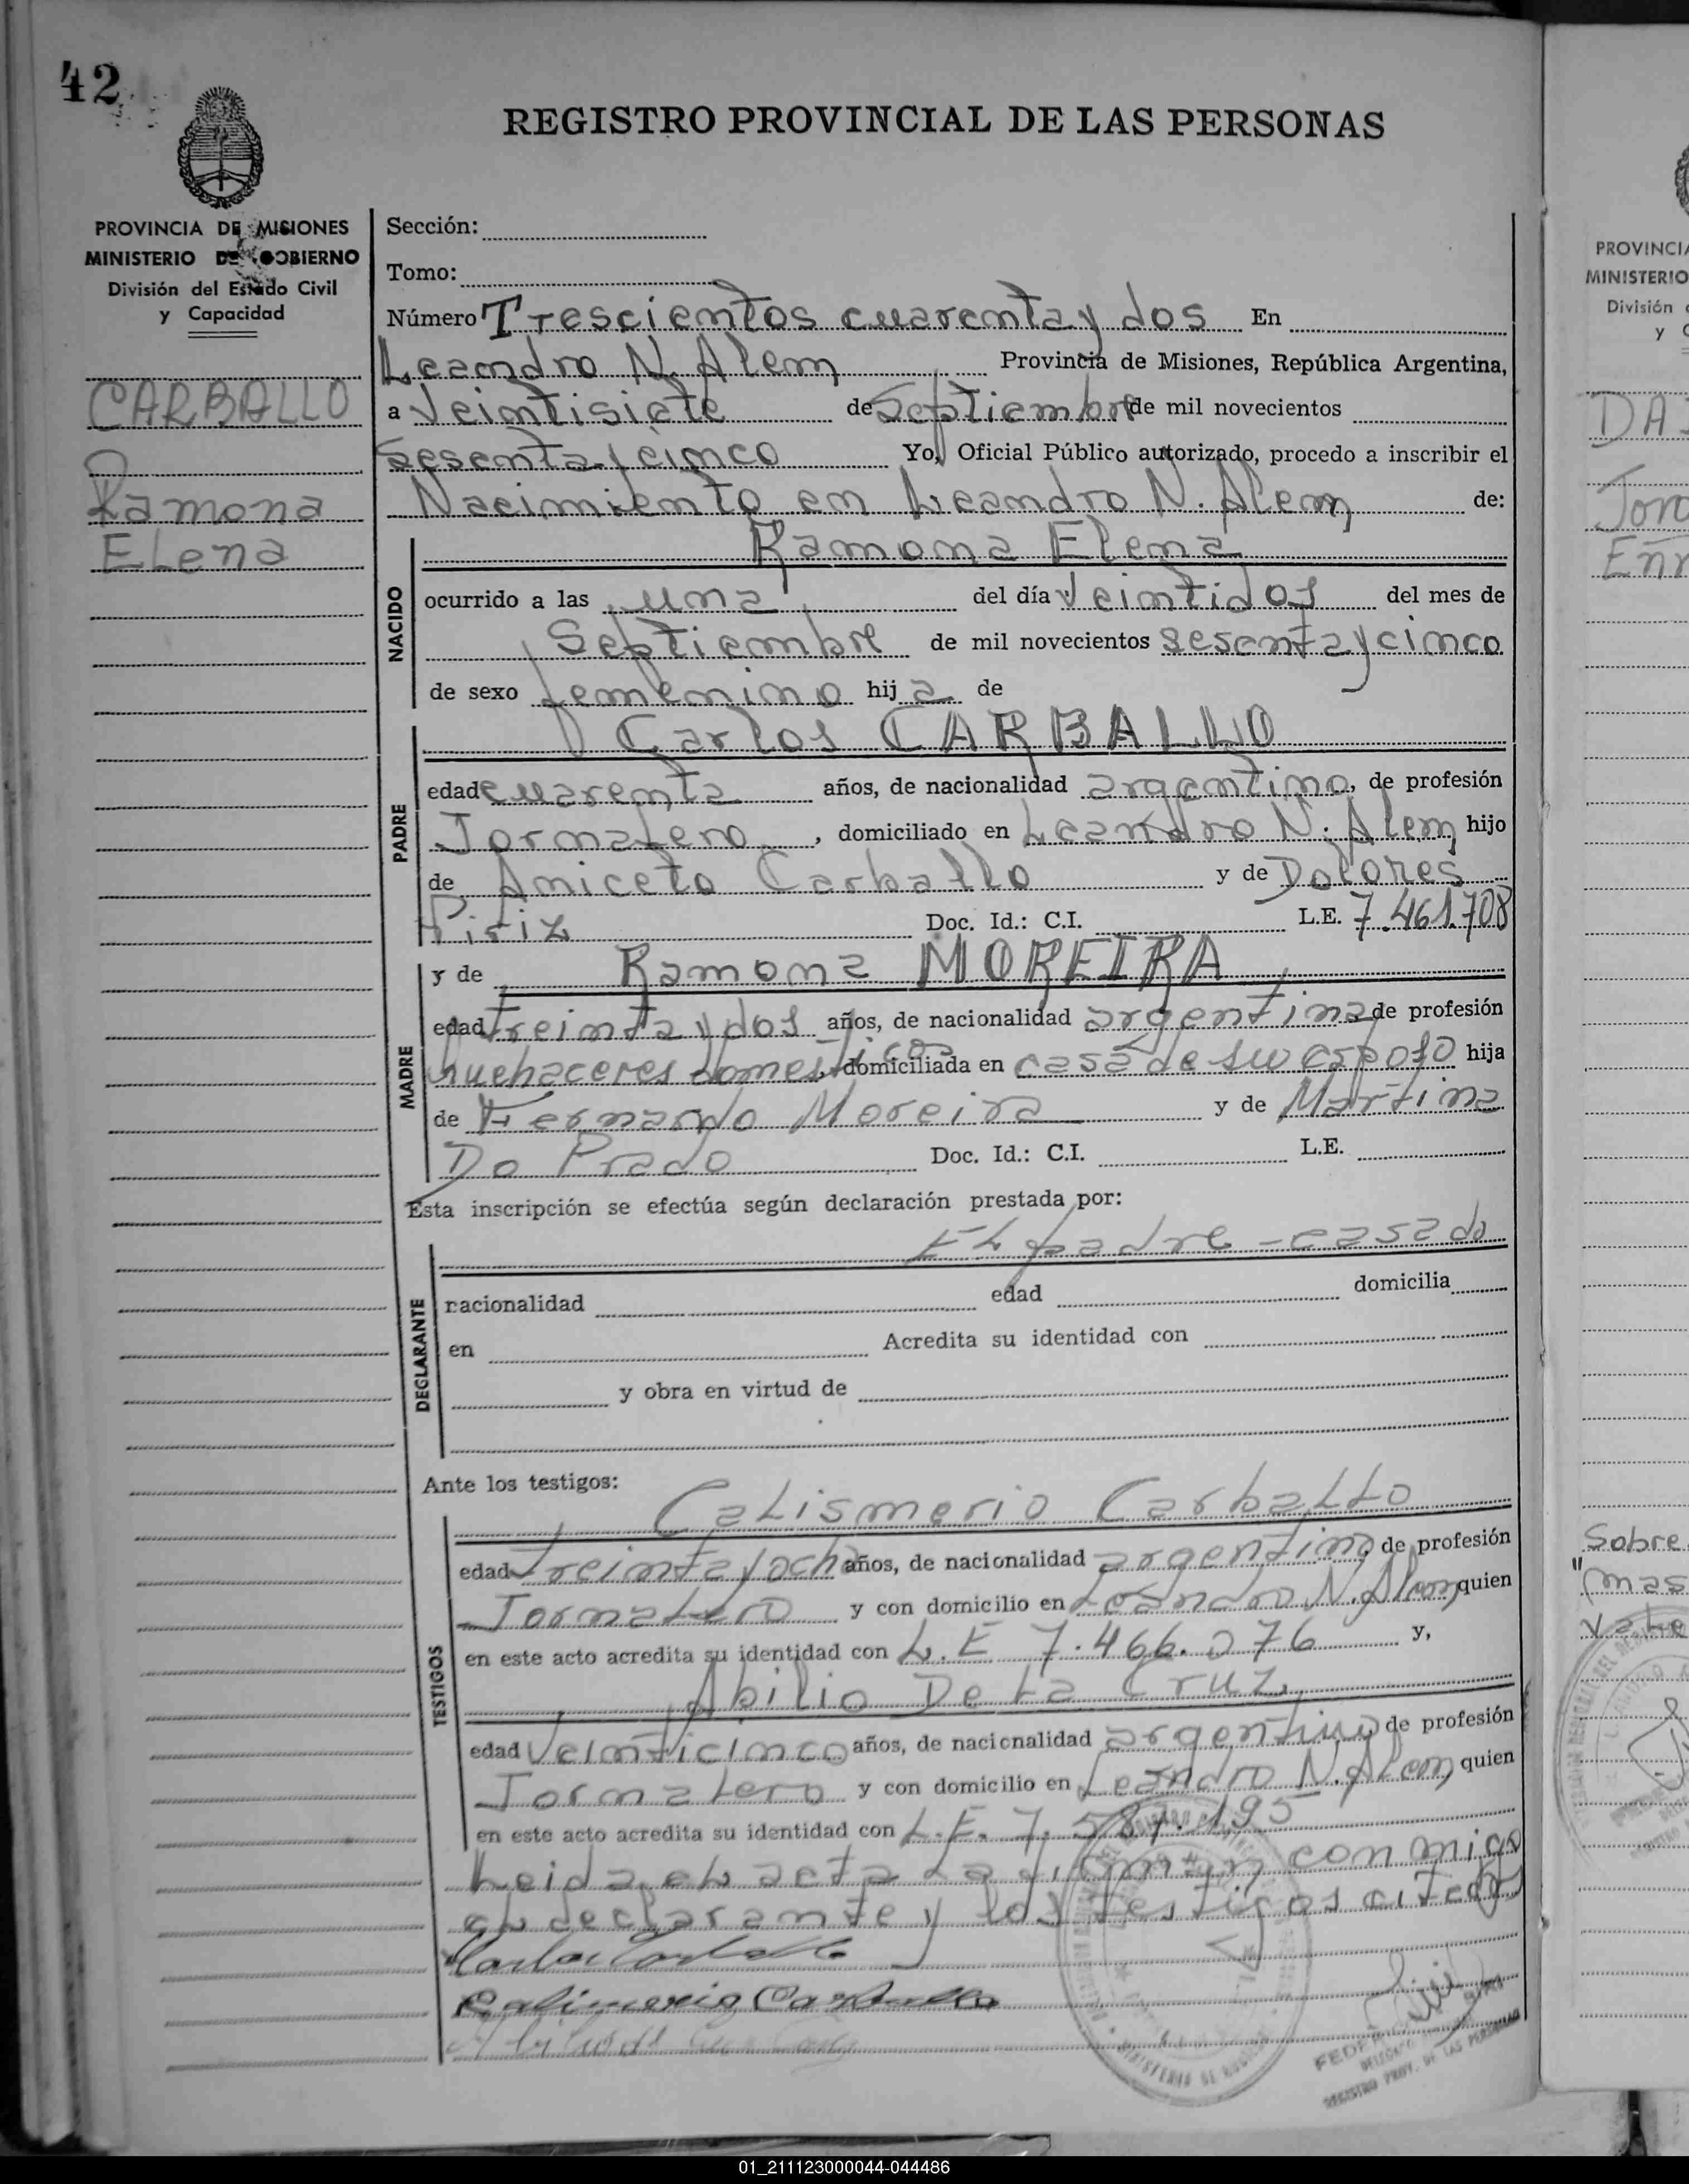 42
REGISTRO PROVINCIAL DE LAS PERSONAS
PROVINCIA DE MISIONES
MINISTERIO DE GOBIERNO
División del Estado Civil
y Capacidad
CARBALLO
Ramona
Elena
Sección:
Tomo:
Número Trescientos cuarenta y dos En
Leandro N. Alem Provincia de Misiones, República Argentina,
a Veintisiete de Septiembre de mil novecientos
sesenta y cinco Yo, Oficial Público autorizado, procedo a inscribir el
Nacimiento en Leandro N. Alem de:
Ramona Elena
NACIDO
ocurrido a las una del día veintidos del mes de
Septiembre de mil novecientos sesenta y cinco
de sexo femenino hija de
PADRE
Carlos CARBALLO
edad cuarenta años, de nacionalidad argentino, de profesión
Jornalero, domiciliado en Leandro N. Alem hijo
de Aniceto Carballo y de Dolores
Piriz Doc. Id.: C.I. L.E. 7.461.708
MADRE
y de Ramona MOREIRA
edad treinta y dos años, de nacionalidad argentina de profesión
quehaceres domesticos, domiciliada en casa de su esposo hija
de Fernando Moreira y de Martina
Do Prado Doc. Id.: C.I. L.E.
Esta inscripción se efectúa según declaración prestada por:
El padre - casado
DECLARANTE
nacionalidad edad domicilia
en Acredita su identidad con
y obra en virtud de
Ante los testigos:
TESTIGOS
Calismerio Carballo
edad treinta y ocho años, de nacionalidad argentino, de profesión
Jornalero y con domicilio en Leandro N. Alem quien
en este acto acredita su identidad con L.E 7.466.076 y,
Abilio De La Cruz
edad veinticinco años, de nacionalidad argentino de profesión
Jornalero y con domicilio en Leandro N. Alem quien
en este acto acredita su identidad con L.E. 7.584.195
Leida el acta la firman conmigo
el declarante y los testigos citados
Carlos Carballo
Calismerio Carballo
REGISTRO PROV. DE LAS PERSONAS
PROVINCIA
MINISTERIO
División
y
Sobre
"mas
Vale
01_211123000044-044486